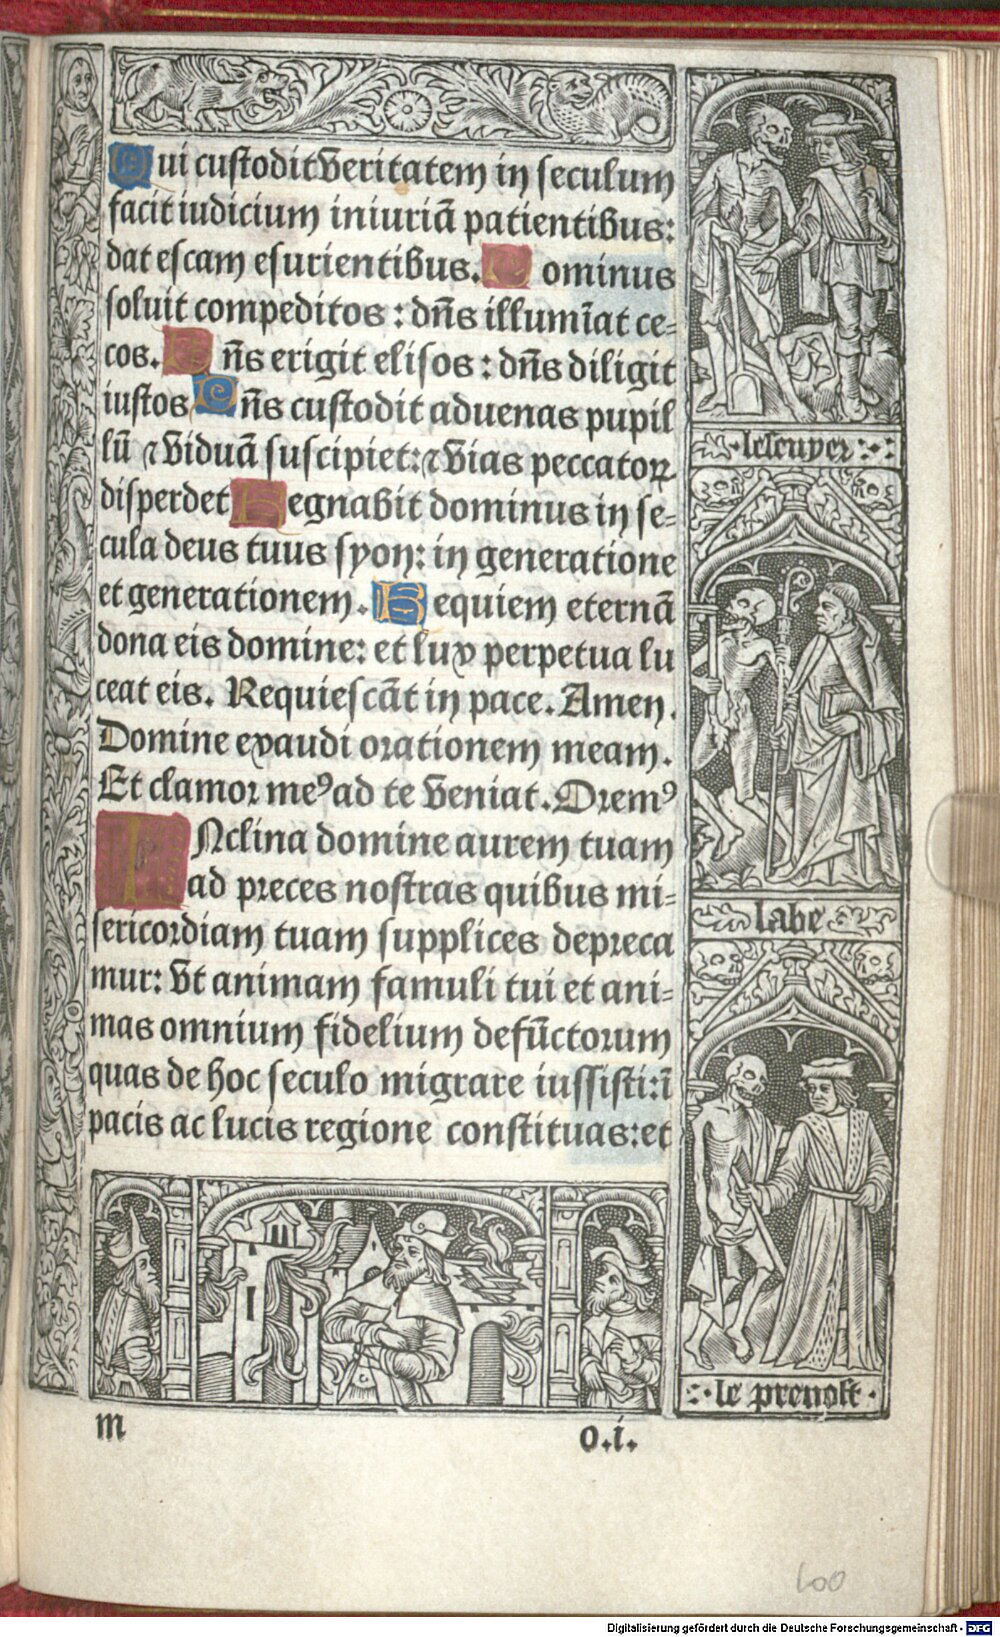 Qui custodit veritatem in seculum
facit iudicium iniuriā patientibus:
dat escam esurientibus. Dominus
soluit compeditos : dn̄s illumīat ce=
cos. Dn̄s erigit elisos : dn̄s diligit
iustos Dn̄s custodit aduenas pupil
lū ⁊ viduā suscipiet: ⁊ vias peccatoꝝ
disperdet Regnabit dominus in se=
cula deus tuus syon: in generatione
et generationem. Requiem eternā
dona eis domine: et lux perpetua lu
ceat eis. Requiescāt in pace. Amen.
Domine exaudi orationem meam.
Et clamor meꝰ ad te veniat. Oremꝰ
INclina domine aurem tuam
ad preces nostras quibus mi=
sericordiam tuam supplices depreca
mur: vt animam famuli tui et ani=
mas omnium fidelium defūctorum
quas de hoc seculo migrare iussisti: ī
pacis ac lucis regione constituas: et
lescuyer
labe
le preuost
m
o.i.
100
Digitalisierung gefördert durch die Deutsche Forschungsgemeinschaft - DFG